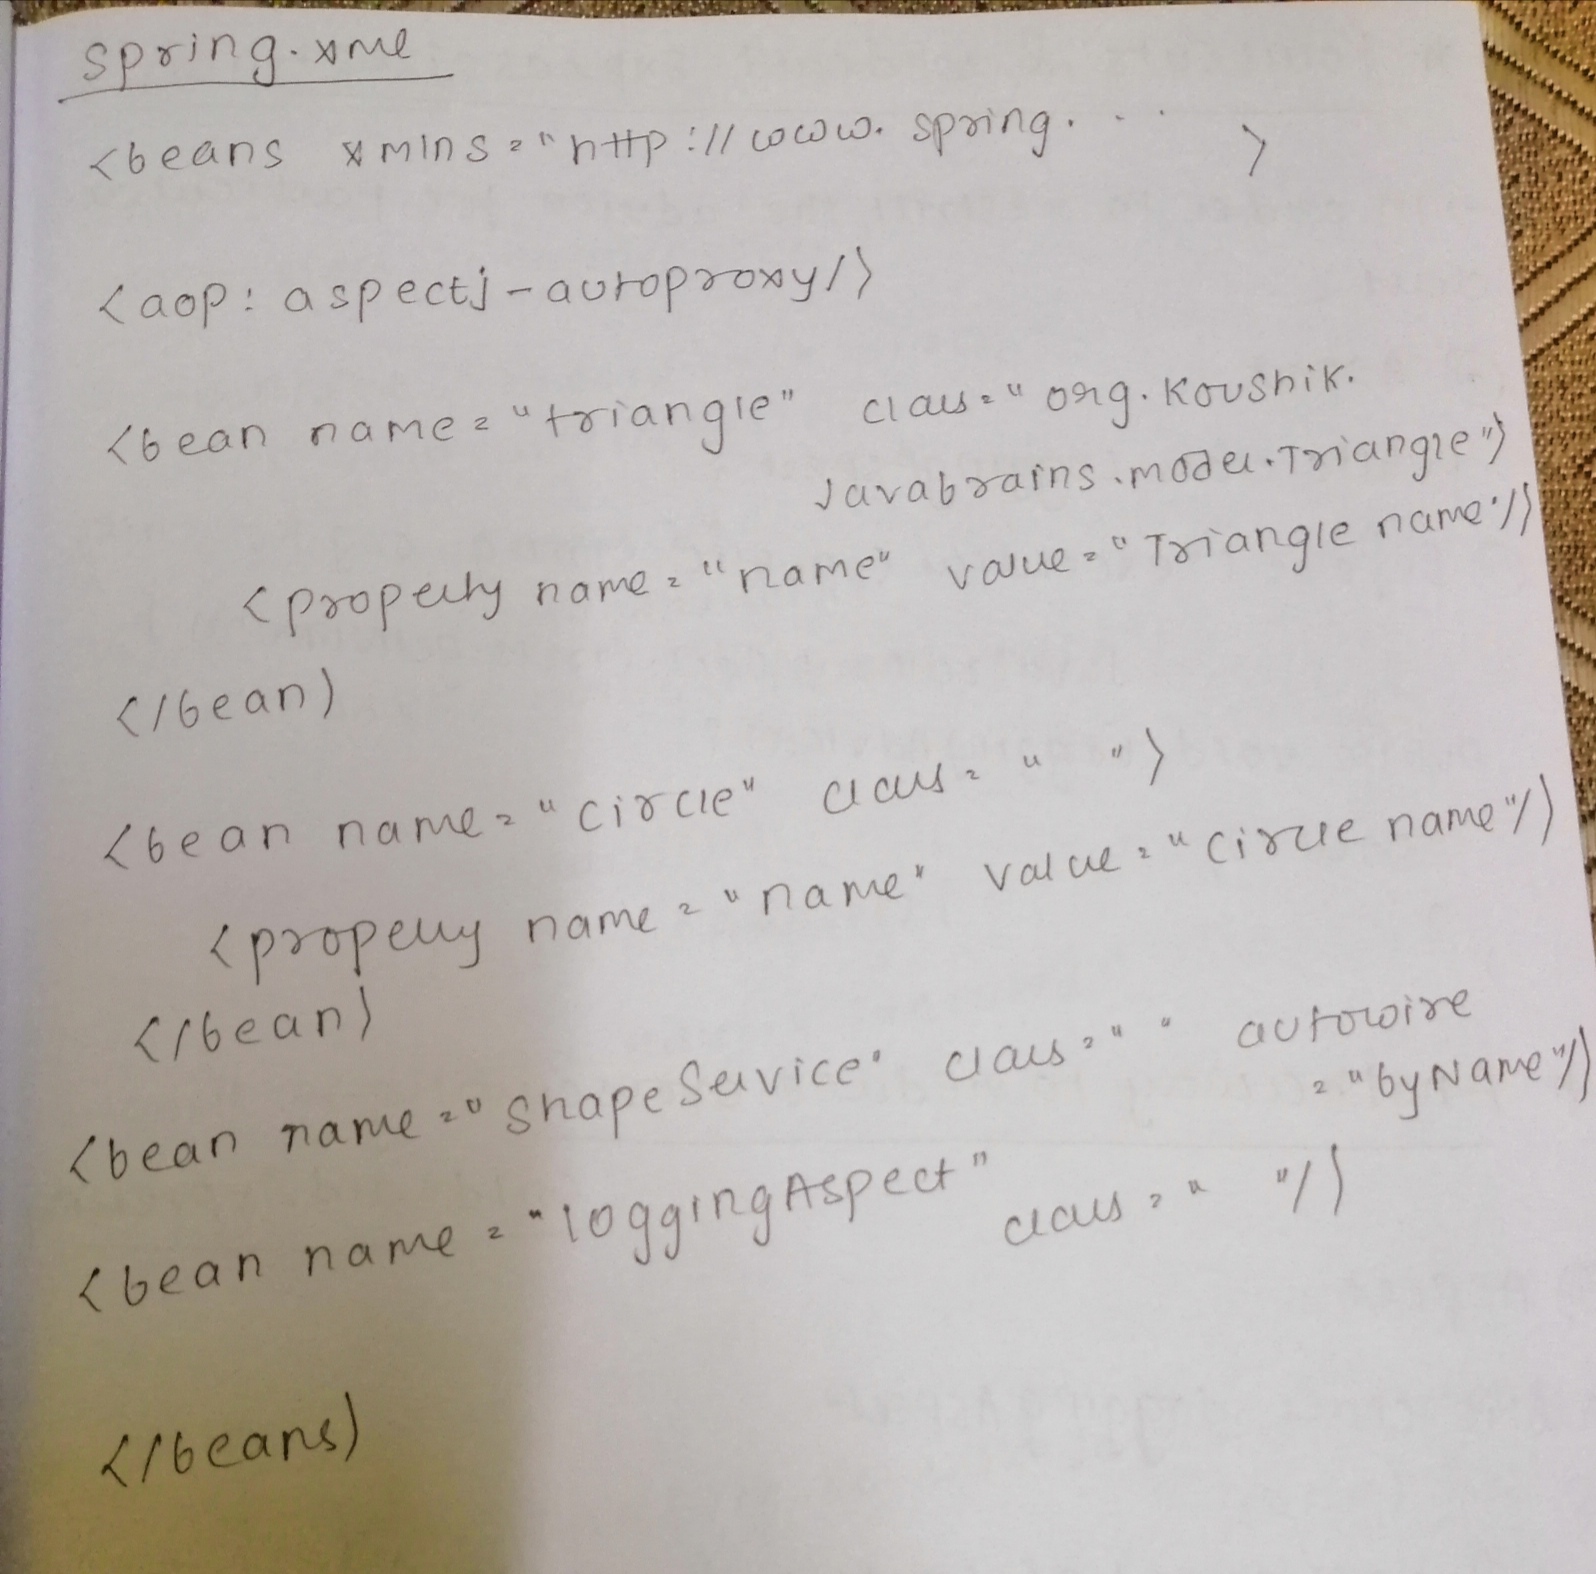 spring.xml
<beans xmlns="http://www.spring. . . . >
<aop: aspectj-autoproxy/>
<bean name="triangle" class="org.koushik.
javabrains.model.Triangle">
<property name="name" value="Triangle name"/>
</bean>
<bean name="circle" class=" ">
<property name="name" value="circle name"/>
</bean>
<bean name="shapeService" class=" " autowire
="byName"/>
<bean name="loggingAspect" class=" "/>
</beans>